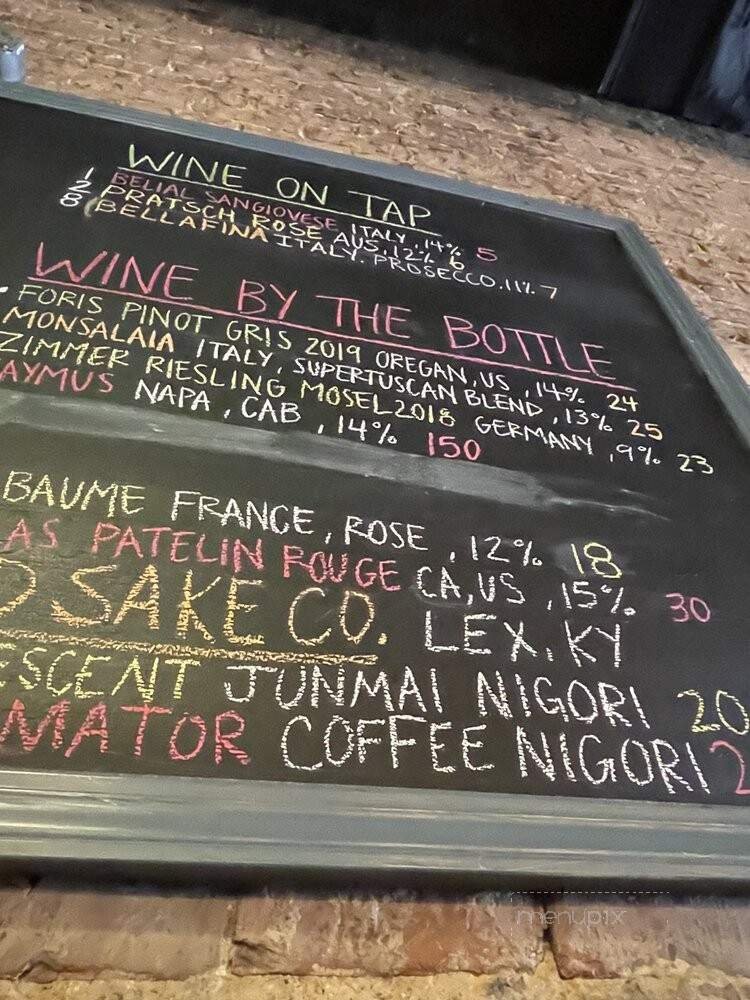 WINE ON TAP
1 BELIAL SANGIOVESE ITALY, 14% 5
2 PRATSCH ROSE AUS, 12% 6
8 BELLAFINA ITALY. PROSECCO. 11% 7
WINE BY THE BOTTLE
FORIS PINOT GRIS 2019 OREGAN, US, 14% 24
MONSALAIA ITALY, SUPERTUSCAN BLEND, 13% 25
ZIMMER RIESLING MOSEL 2018 GERMANY, 9% 23
AYMUS NAPA, CAB, 14% 150
BAUME FRANCE, ROSE, 12% 18
AS PATELIN ROUGE CA, US, 15% 30
D SAKE CO. LEX, KY
ESCENT JUNMAI NIGORI 20
MATOR COFFEE NIGORI 2
menupix